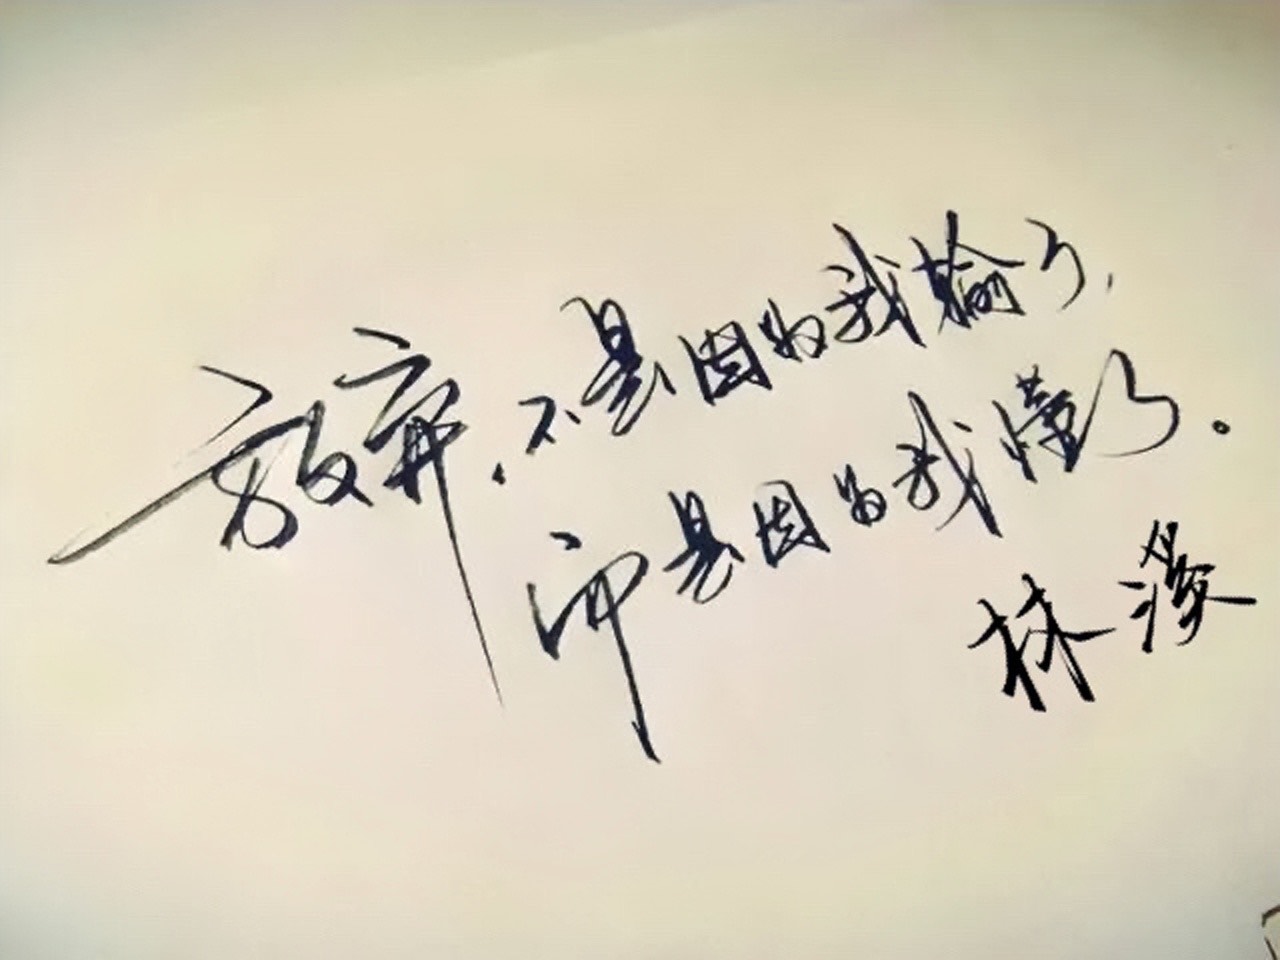 放弃，不是因为我输了，
而是因为我懂了。
林